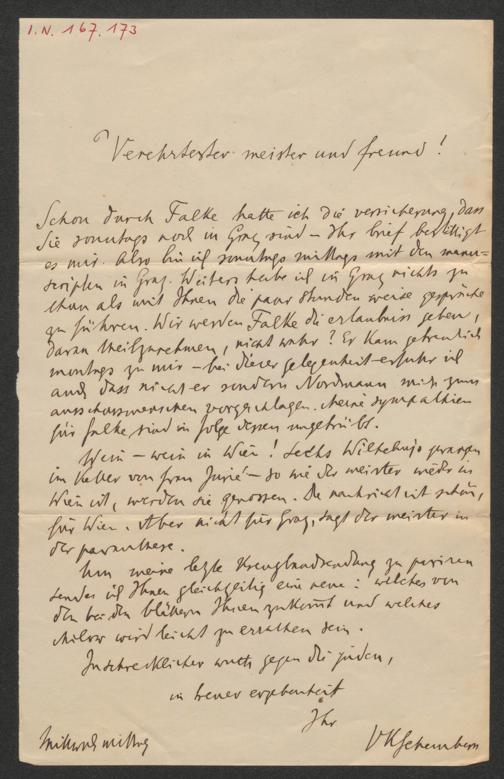 I.N. 167.173
Verehrtester meister und freund!
Schon durch Falke hatte ich die versicherung, dass
Sie sonntags noch in Graz sind – Ihr brief bestättigt
es mir. Also bin ich sonntags mittags mit den manu=
scripten in Graz. Weiters habe ich in Graz nichts zu
thun als mit Ihnen die paar stunden weise gespräche
zu führen. Wir werden Falke die erlaubniss geben,
daran theilzunehmen, nicht wahr? Er kam
montags zu mir – bei dieser gelegenheit erfuhr ich
auch dass nicht er sondern Nordmann mich zum
vorgeschlagen. Meine sympathien
für Falke sind in folge dessen ungetrübt.
Wein – wein in Wien! Sechs
im Keller von frau – so wie der meister wieder in
Wien ist, werden sie genossen. Die nachricht ist schön,
für Wien. Aber nicht für Graz, sagt der meister in
der parenthese.
Um meine letzte zu
sende ich Ihnen gleichzeitig eine neue: welches von
den beiden blättern Ihnen zukommt und welches
wird leicht zu errathen sein.
In schrecklicher wuth gegen die juden,
in treuer ergebenheit
Ihr
Mittwoch mittag